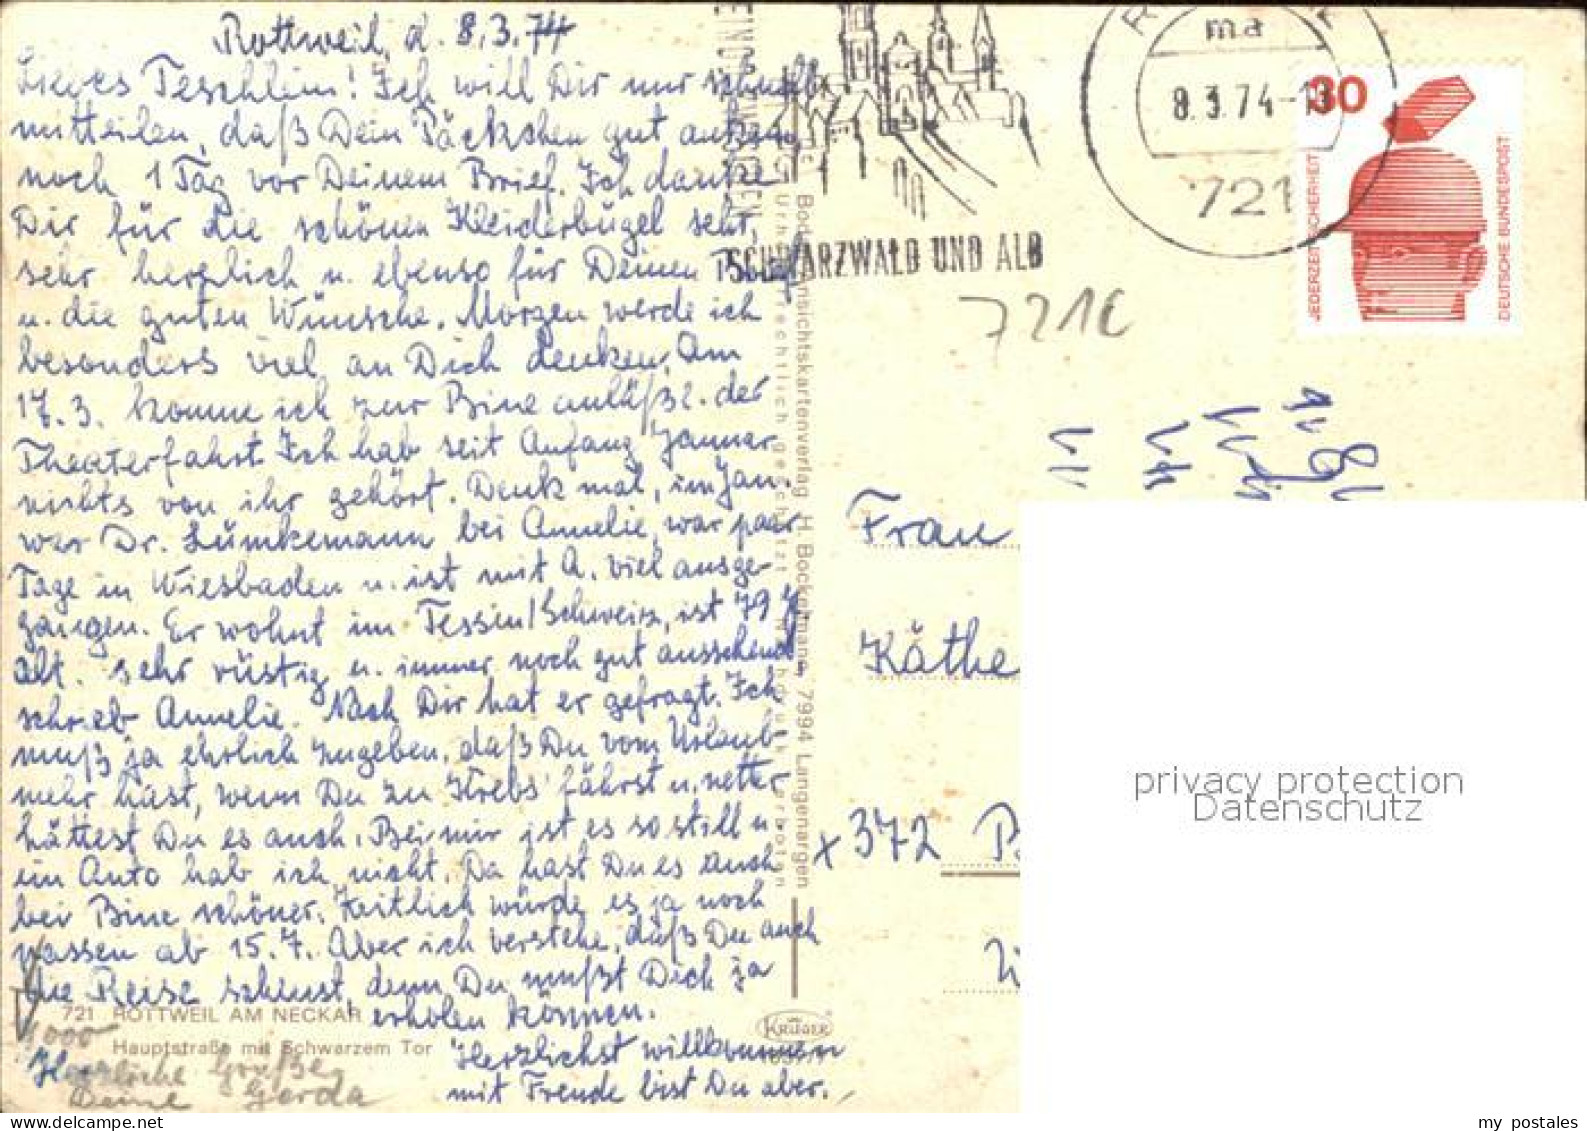 Rottweil, d. 8.3.74
Liebes Teschlein! Ich will Dir nur schnell
mitteilen, daß Dein Päckchen gut ankam,
noch 1 Tag vor Deinem Brief. Ich danke
Dir für die schönen Kleiderbügel sehr,
sehr herzlich u. ebenso für Deinen Brief
u. die guten Wünsche. Morgen werde ich
besonders viel an Dich denken. Am
17.3. komme ich zur Bine anläßl. der
Theaterfahrt. Ich hab seit Anfang Januar
nichts von ihr gehört. Denk mal, im Jan.
war Dr. Lümkemann bei Annelie, war paar
Tage in Wiesbaden u. ist mit A. viel ausge-
gangen. Er wohnt im Tessin/Schweiz, ist 79 J
alt. sehr rüstig u. immer noch gut aussehend
schrieb Annelie. Nach Dir hat er gefragt. Ich
muß ja ehrlich zugeben, daß Du vom Urlaub
mehr hast, wenn Du zu Krebs' fährst u. netter
hättest Du es auch. Bei mir ist es so still u.
ein Auto hab ich nicht. Da hast Du es auch
bei Bine schöner. Zeitlich würde es ja noch
passen ab 15.7. Aber ich verstehe, daß Du auch
die Reise scheust, denn Du mußt Dich ja
erholen können.
Herzlichst willkommen
mit Freude bist Du aber.
Herzliche Grüße
Deine Gerda
1000
721 ROTTWEIL AM NECKAR
Hauptstraße mit Schwarzem Tor
KRÜGER
Bodenseeansichtskartenverlag H. Bockelmann, 7994 Langenargen
Urheberrechtlich geschützt Nachdruck verboten
SCHWARZWALD UND ALB
ma
8.3.74-1
721
30
JEDERZEIT SICHERHEIT
DEUTSCHE BUNDESPOST
721C
Frau
Käthe
x 372
privacy protection
Datenschutz
my postales